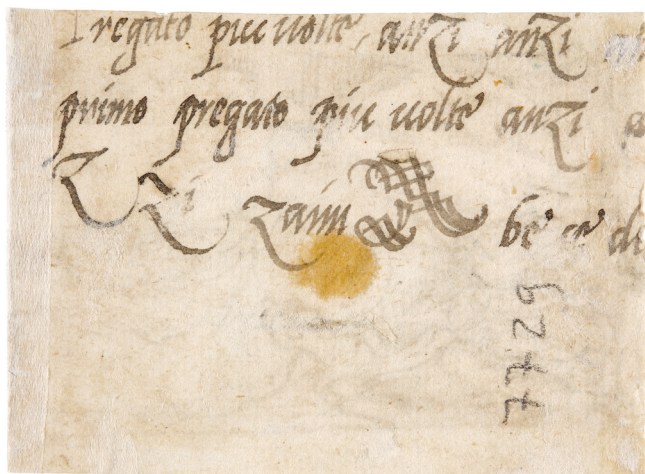 Pregato piu uolte, anzi anzi
primo pregato piu uolte anzi a
Z Zi zaim be ce di
6277